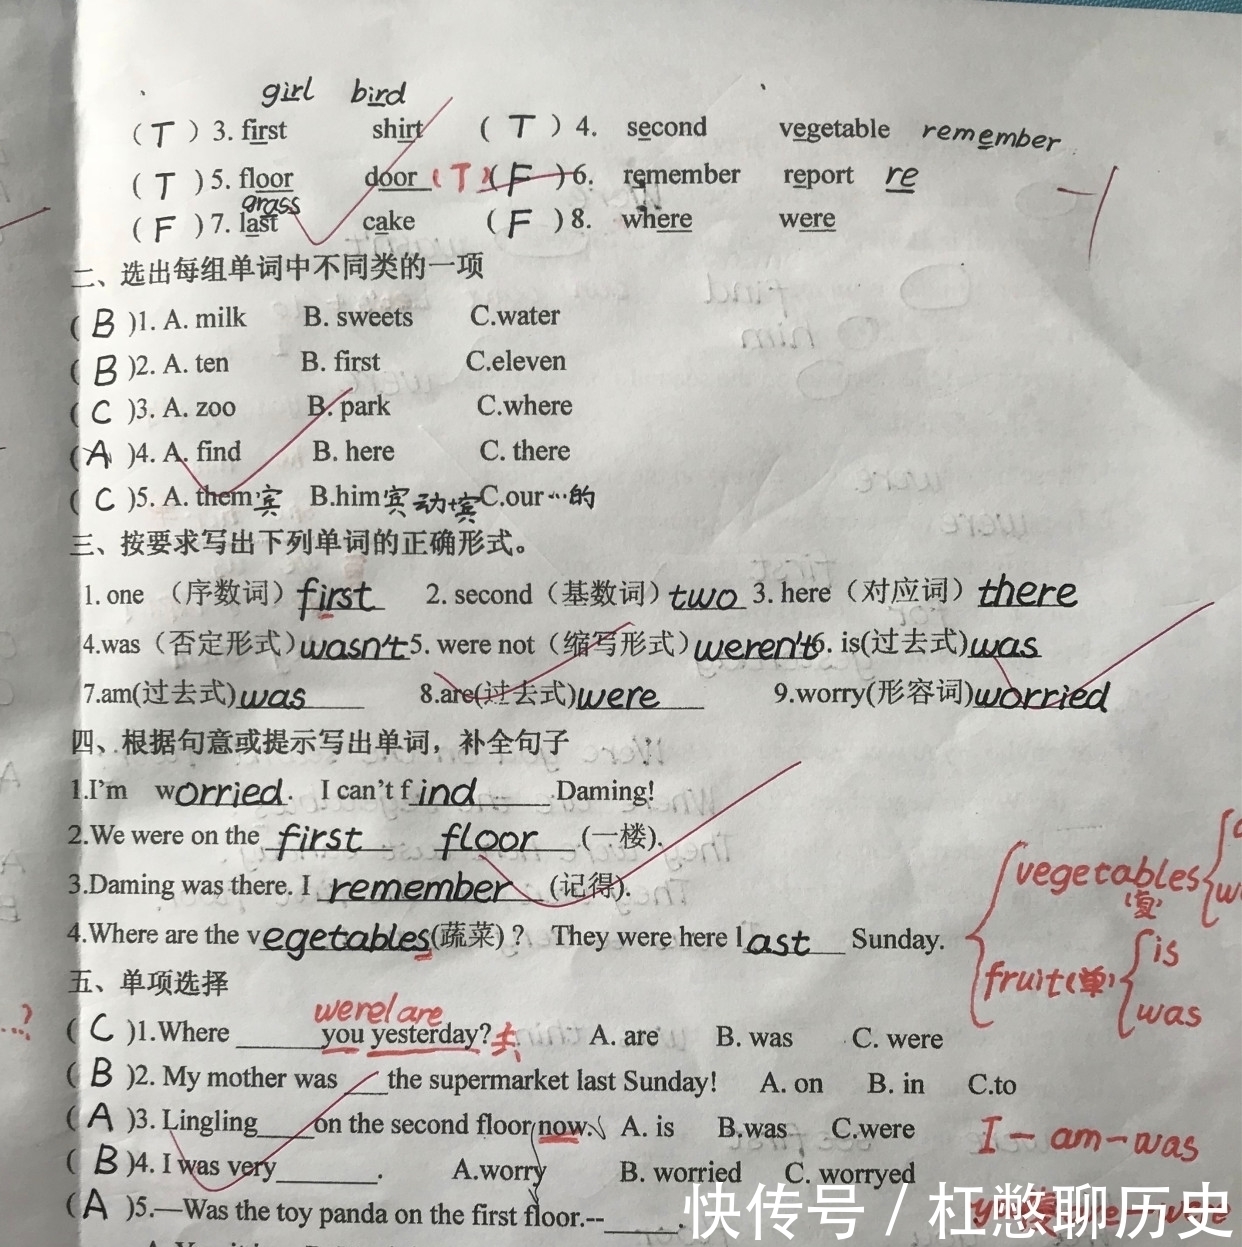 girl bird
( T ) 3. first shirt ( T ) 4. second vegetable remember
( T ) 5. floor door (T) ( F ) 6. remember report re
grass
( F ) 7. last cake ( F ) 8. where were
-1
二、选出每组单词中不同类的一项
( B )1. A. milk B. sweets C.water
( B )2. A. ten B. first C.eleven
( C )3. A. zoo B. park C.where
( A )4. A. find B. here C. there
( C )5. A. them宾 B.him宾 动+宾 C.our…的
三、按要求写出下列单词的正确形式。
1. one （序数词）first 2. second（基数词）two 3. here（对应词）there
4.was（否定形式）wasn't 5. were not（缩写形式）weren't 6. is(过去式)was
7.am(过去式)was 8.are(过去式)were 9.worry(形容词)worried
四、根据句意或提示写出单词，补全句子
1.I'm worried. I can't find Daming!
2.We were on the first floor (一楼).
3.Daming was there. I remember (记得).
vegetables (复)
4.Where are the vegetables(蔬菜)？ They were here last Sunday.
fruit(单) is was
五、单项选择
were/are
...?
( C )1.Where ______you yesterday?去 A. are B. was C. were
( B )2. My mother was ___the supermarket last Sunday! A. on B. in C.to
( A )3. Lingling____on the second floor now. A. is B.was C.were
I - am - was
( B )4. I was very_______. A.worry B. worried C. worryed
( A )5.—Was the toy panda on the first floor.--_____.
快传号 / 杠憋聊历史